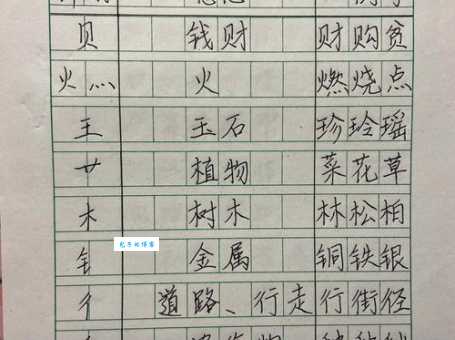 贝 钱财 财购贫
火灬 火 燃烧点
王 玉石 珍玲瑶
艹 植物 菜花草
木 树木 林松柏
钅 金属 铜铁银
彳 道路、行走 行街径